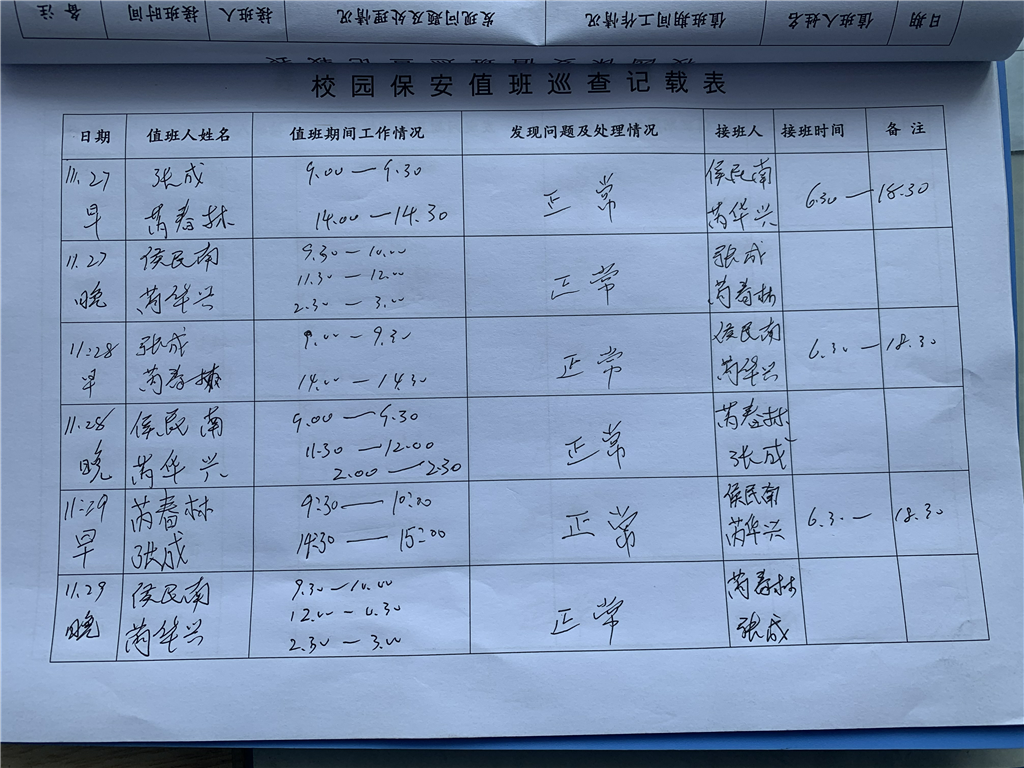 备注 接班时间 接班人 发现问题及处理情况 值班期间工作情况 值班人姓名 日期
校园保安值班巡查记载表
日期 值班人姓名 值班期间工作情况 发现问题及处理情况 接班人 接班时间 备注
11.27 张成 9.00—9.30 侯民南
早 芮春林 14.00—14.30 正常 芮华兴 6.30—18.30
11.27 侯民南 9.30—10.00 张成
晚 芮华兴 11.30—12.00 正常 芮春林
2.30—3.00
11.28 张成 9.00—9.30 侯民南
早 芮春林 14.00—14.30 正常 芮华兴 6.30—18.30
11.28 侯民南 9.00—9.30 芮春林
晚 芮华兴 11.30—12.00 正常 张成
2.00—2.30
11.29 芮春林 9:30—10:00 侯民南
早 张成 14:30—15:00 正常 芮华兴 6.30—18.30
11.29 侯民南 9.30—10.00 芮春林
晚 芮华兴 12.00—0.30 正常 张成
2.30—3.00